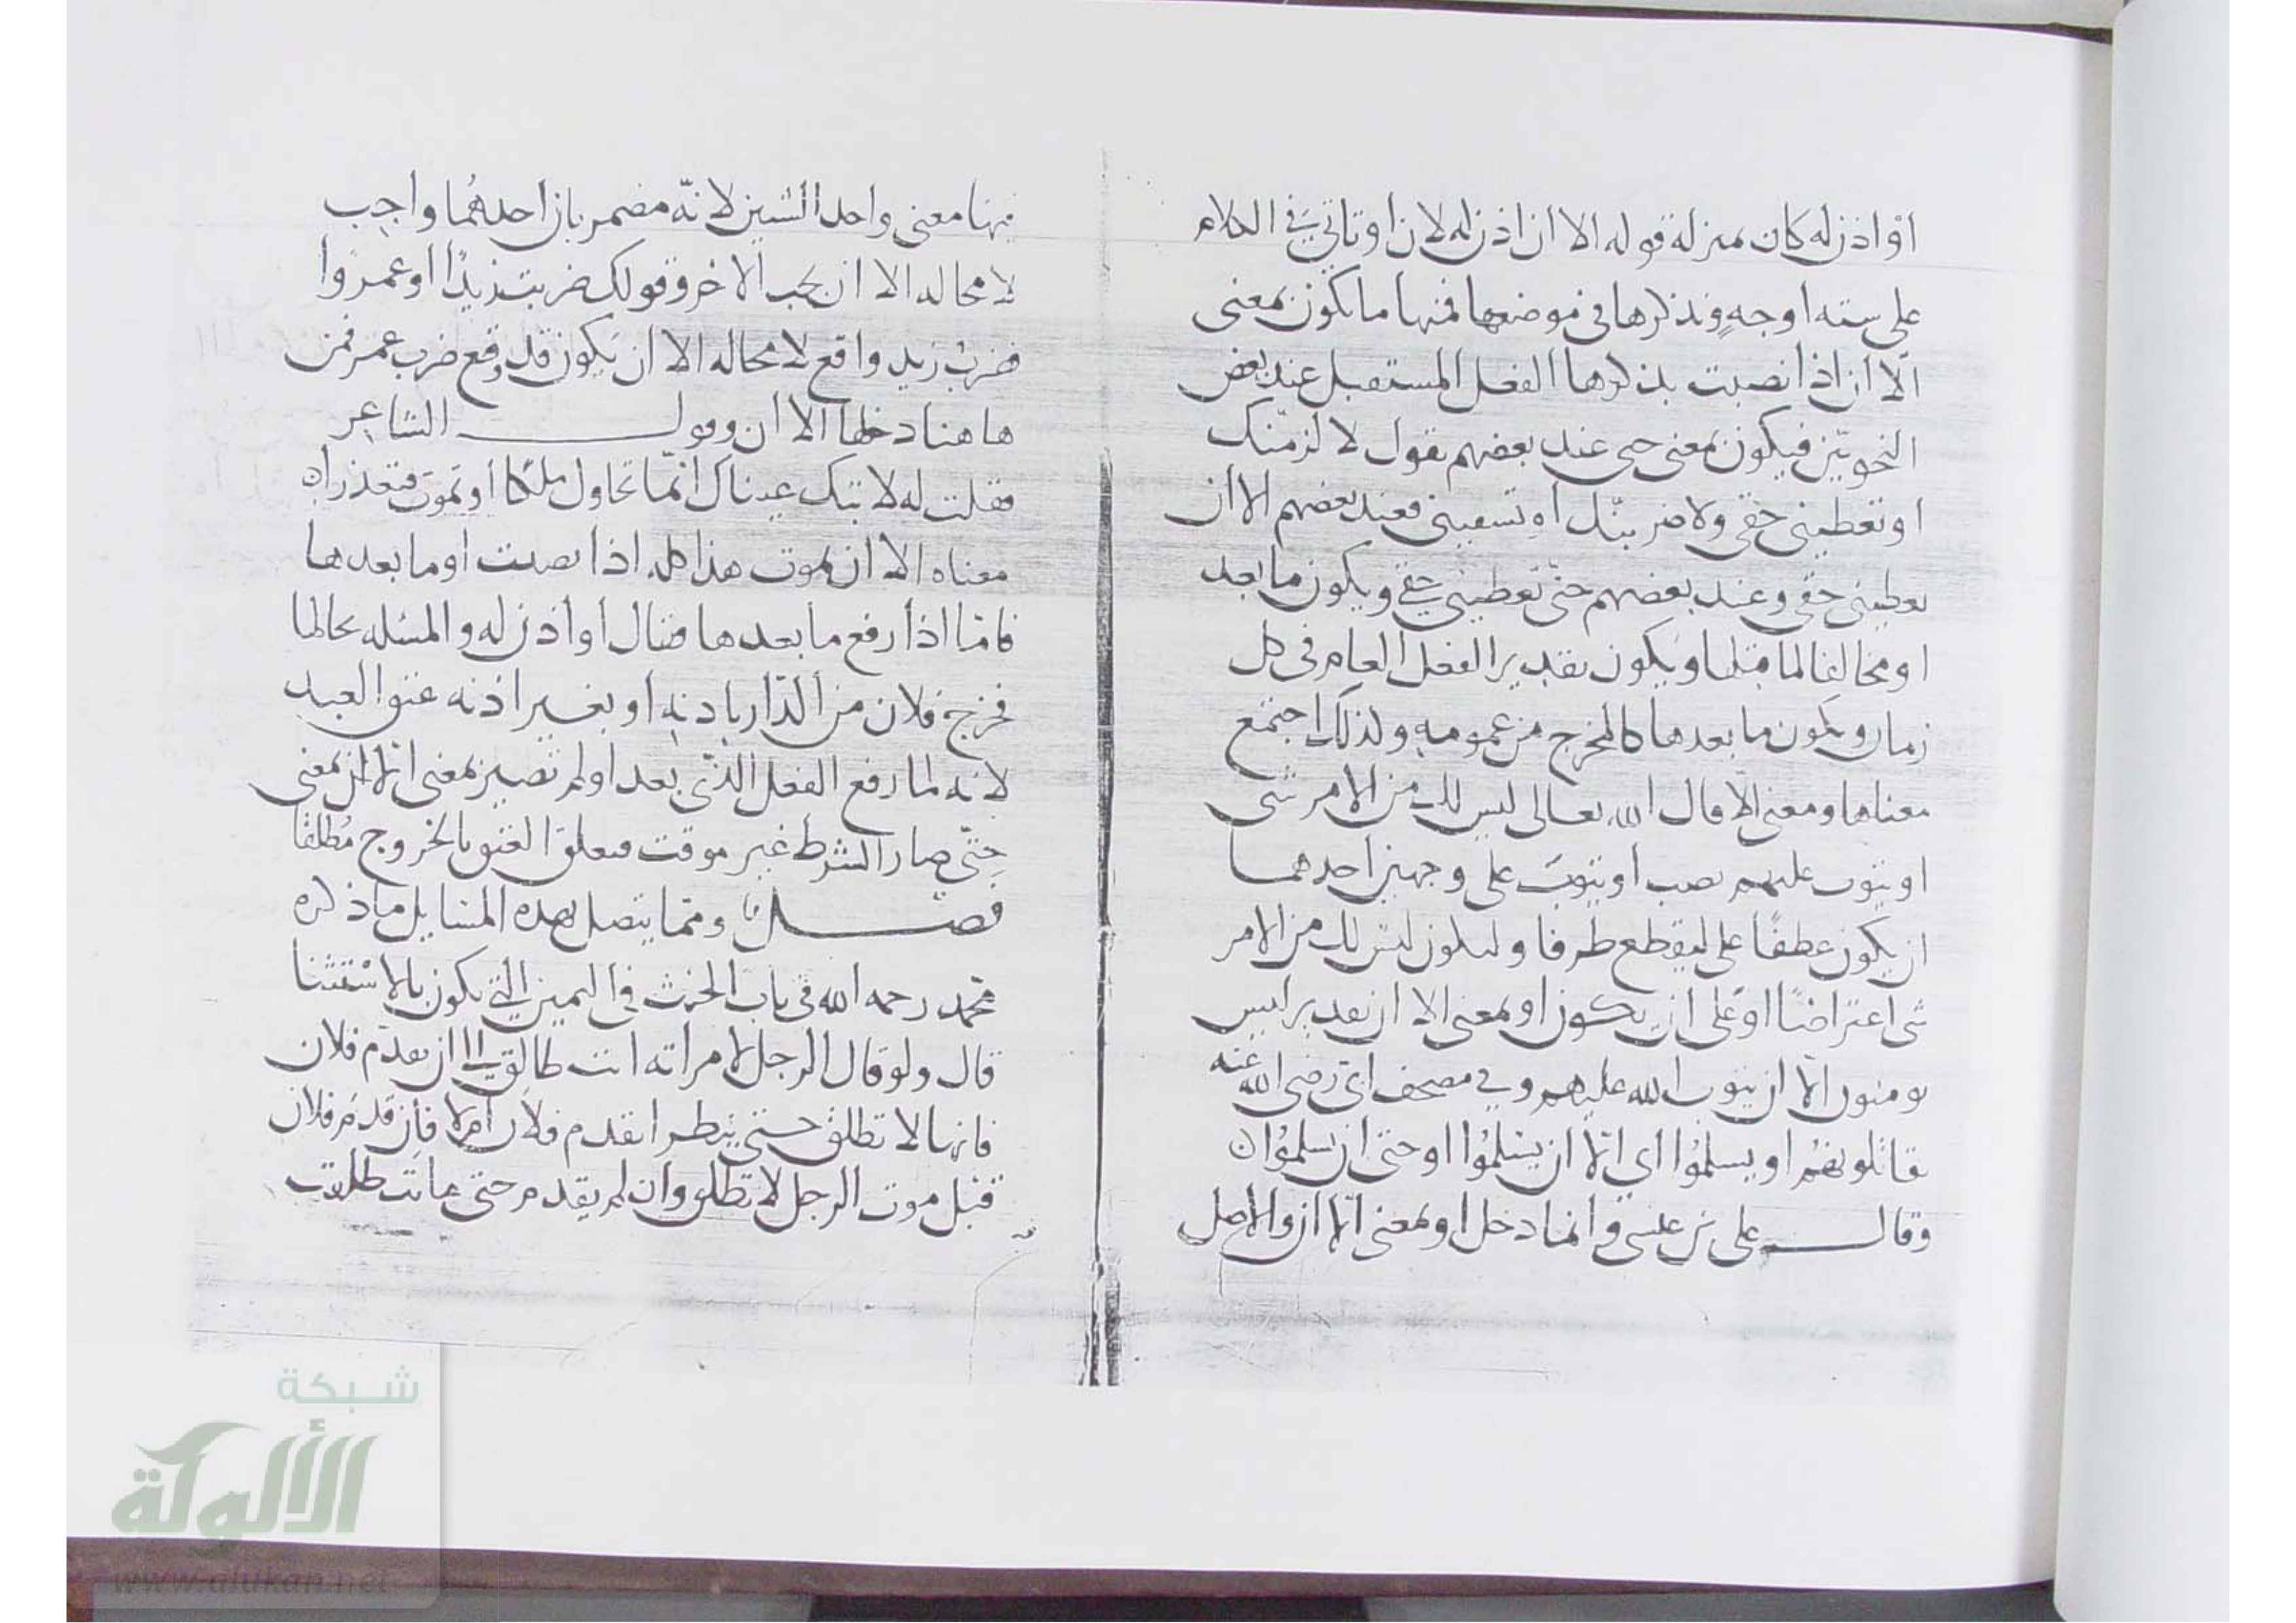 اوْ اذن له كان بمنزلة قوله الا ان اذن له لان او تاتي في الكلام
على سته اوجهٍ ونذكرها في موضعها فمنها ما يكون بمعنى
الّا ان اذا نصبت بذكرها الفعل المستقبل عند بعض
النحويّين فيكون بمعنى حتى عند بعضهم تقول لالزمنّك
او تعطيني حقي ولاضربنّك او تسبقني فعند بعضهم الا ان
تعطيني حقي وعند بعضهم حتّى تعطيني حقي ويكون ما بعد
او مخالفا لما قبلها ويكون تقدير الفعل العام في كل
زمان ويكون ما بعدها كالمخرج من عمومه ولذلك اجتمع
معناها ومعنى الّا قال الله تعالى ليس لك من الامر شى
او يتوب عليهم نصب او يتوبَ على وجهين احدهما
ان يكون عطفًا على ليقطع طرفا وليكون ليس لك من الامر
شى اعتراضًا او على ان يكون او بمعنى الا ان تقديره ليس
يومنون الّا ان يتوب الله عليهم وفي مصحف ابيّ رضي الله عنه
تقاتلونهُم او يسلمُوا اي الّا ان يسْلمُوا او حتى ان يسلمُوا ن
وقال على بن عيسى وانما دخل او بمعنى الّا ان والاصل
فيها معنى واحد الشيين لانّه مضمر بان احدهُما واجب
لا محاله الا ان يجب الاخر وقولك ضربت زيدًا او عمروا
فضربُ زيد واقع لا محاله الا ان يكون قد وقع ضرب عمر فمن
هاهنا دخلها الا ان وقول الشاعر
فقلت له لا تبك عيناك انّما تحاول ملكا او تموت فتعذرا ه
معناه الا ان يموت هذا كله اذا نصبت او ما بعدها
فامّا اذا رفع ما بعدها فقال او اذن له والمسئله بحالها
فخرج فلان من الدّار باذنه او بغير اذنه عتق العبد
لانه لما رفع الفعل الذي بعد او لم تصير بمعنى الّا ان بمعنى
حتّى صار الشرط غير موقت فتعلق العتق بالخروج مُطلقًا
فصل ومّما يتصل بهذه المسايل ما ذكره
محمّد رحمه الله في باب الحنث في اليمين التي يكون بالاستثنا
قال ولو قال الرجل لامراته انت طالق الا ان يقدم فلان
فانها لا تطلق حتى ينظر ايقدم فلان ام لا فان قدم فلان
قبل موت الرجل لا تطلق وان لم يقدم حتى مات طلقت
شبكة
الألوكة
www.alukah.net